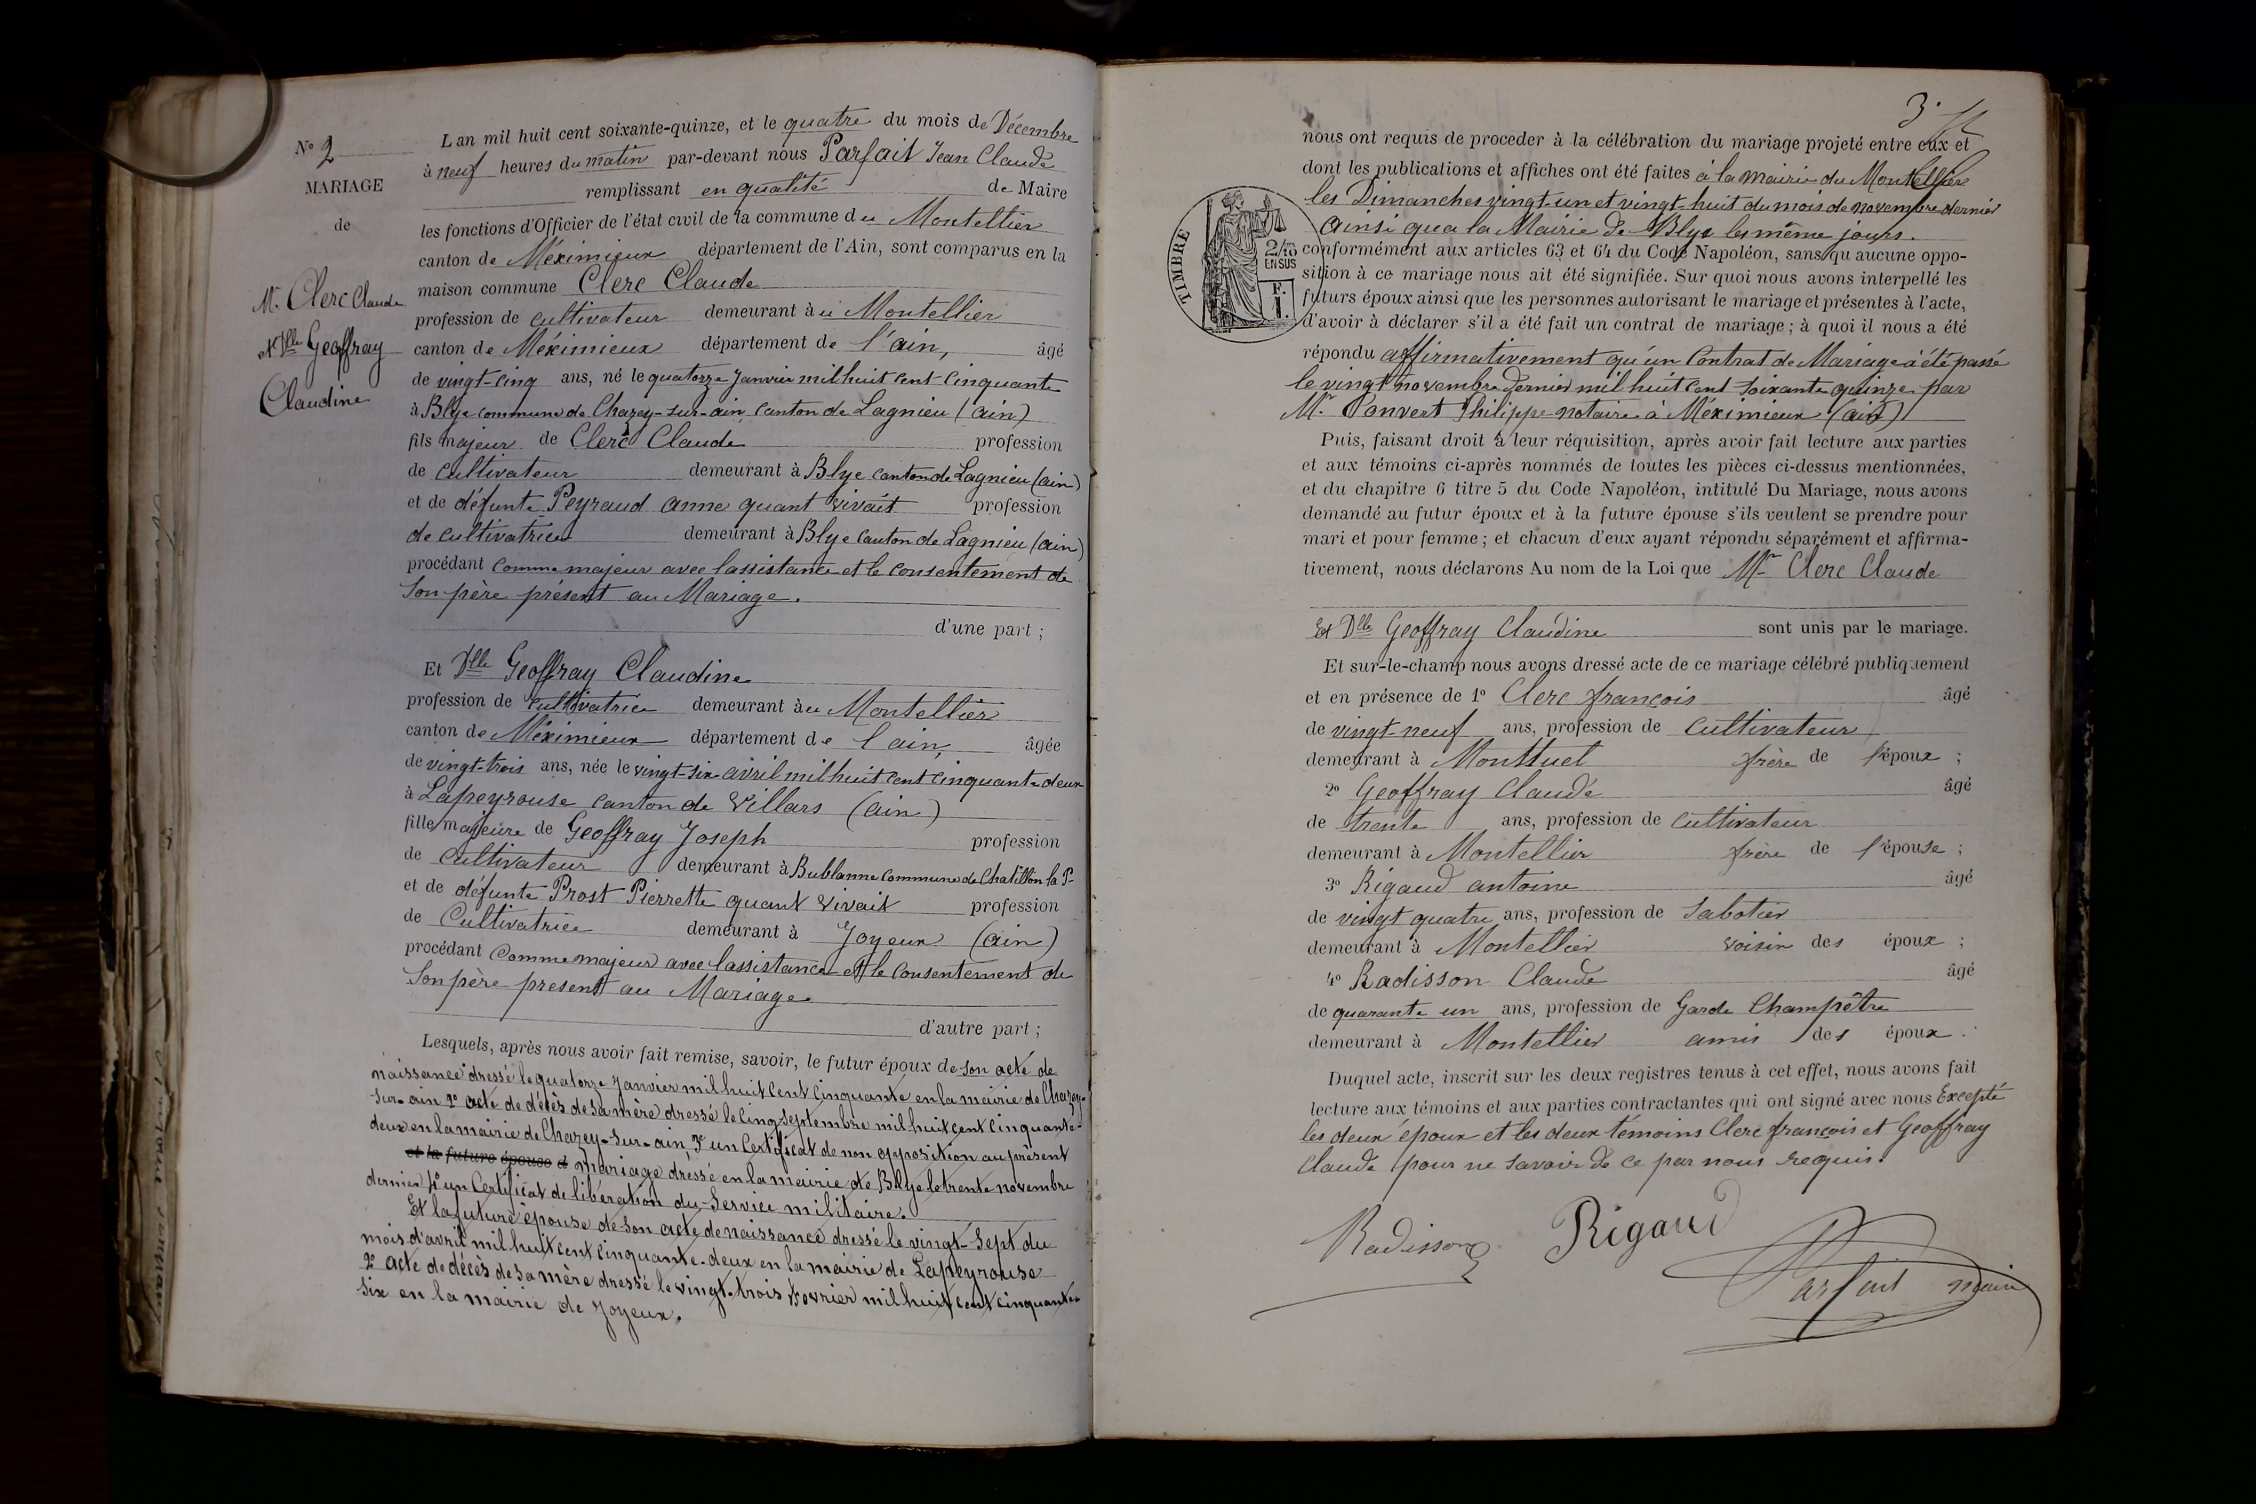 N° 2
MARIAGE
de
Mr. Clerc Claude
et Dlle Geoffray
Claudine
L an mil huit cent soixante-quinze, et le quatre du mois de Décembre
à neuf heures du matin par-devant nous Parfait Jean Claude
remplissant en qualité de Maire
les fonctions d'Officier de l'état civil de la commune du Montellier
canton de Méximieux département de l'Ain, sont comparus en la
maison commune Clerc Claude
profession de cultivateur demeurant à u Montellier
canton de Méximieux département de l'ain, âgé
de vingt-cinq ans, né le quatorze Janvier mil huit cent cinquante
à Blye commune de Chazey-sur-ain canton de Lagnieu (ain)
fils majeur de Clerc Claude profession
de cultivateur demeurant à Blye canton de Lagnieu (ain)
et de défunte Peyraud anne quant vivait profession
de cultivatrice demeurant à Blye canton de Lagnieu (ain)
procédant comme majeur avec lassistance et le consentement de
Son père présent au Mariage.
d'une part ;
Et Dlle Geoffray Claudine
profession de cultivatrice demeurant à u Montellier
canton de Méximieux département de l'ain, âgée
de vingt-trois ans, née le vingt-six avril mil huit cent cinquante deux
à Lapeyrouse canton de Villars (ain)
fille majeure de Geoffray Joseph profession
de cultivateur demeurant à Bublanne commune de Chatillon la P-
et de défunte Prost Pierrette quant vivait profession
de Cultivatrice demeurant à Joyeux (ain)
procédant Comme majeur avec lassistance et le consentement de
Son père present au Mariage.
d'autre part ;
Lesquels, après nous avoir fait remise, savoir, le futur époux de son acte de
naissance dressé le quatorze Janvier mil huit cent cinquante en la mairie de Chazey-
sur-ain 2° acte de décès de sa mère dressé le cinq septembre mil huit cent cinquante-
deux en la mairie de Chazey-sur-ain, 3° un Certificat de non opposition au présent
et la future épouse d mariage dressé en la mairie de Blye le trente novembre
dernier 4° un Certificat de libération du Service militaire.
Et la future épouse de son acte de naissance dressé le vingt-sept du
mois d'avril mil huit cent cinquante-deux en la mairie de Lapeyrouse
2° acte de décès de sa mère dressé le vingt-trois fevrier mil huit cent cinquante
six en la mairie de Joyeux.
3.
nous ont requis de proceder à la célébration du mariage projeté entre eux et
dont les publications et affiches ont été faites à la mairie du Montellier
les Dimanches vingt-un et vingt-huit du mois de novembre dernier
ainsi qua la Mairie de Blye les même jours.
TIMBRE
2/10
EN SUS
F.
1.
conformément aux articles 63 et 64 du Code Napoléon, sans qu aucune oppo-
sition à ce mariage nous ait été signifiée. Sur quoi nous avons interpellé les
futurs époux ainsi que les personnes autorisant le mariage et présentes à l'acte,
d'avoir à déclarer s'il a été fait un contrat de mariage ; à quoi il nous a été
répondu affirmativement qu'un Contrat de Mariage à été passé
le vingt novembre dernier mil huit cent soixante quinze par
Mr Convert Philippe notaire à Méximieux (ain)
Puis, faisant droit à leur réquisition, après avoir fait lecture aux parties
et aux témoins ci-après nommés de toutes les pièces ci-dessus mentionnées,
et du chapitre 6 titre 5 du Code Napoléon, intitulé Du Mariage, nous avons
demandé au futur époux et à la future épouse s'ils veulent se prendre pour
mari et pour femme ; et chacun d'eux ayant répondu séparément et affirma-
tivement, nous déclarons Au nom de la Loi que Mr Clerc Claude
Et Dlle Geoffray Claudine sont unis par le mariage.
Et sur-le-champ nous avons dressé acte de ce mariage célébré publiquement
et en présence de 1° Clerc françois âgé
de vingt-neuf ans, profession de cultivateur
demeurant à Montluel frère de l'époux ;
2° Geoffray Claude âgé
de trente ans, profession de cultivateur
demeurant à Montellier frère de l'épouse ;
3° Rigaud antoine âgé
de vingt quatre ans, profession de sabotier
demeurant à Montellier voisin des époux ;
4° Radisson Claude âgé
de quarante un ans, profession de Garde Champêtre
demeurant à Montellier amis des époux .
Duquel acte, inscrit sur les deux registres tenus à cet effet, nous avons fait
lecture aux témoins et aux parties contractantes qui ont signé avec nous Excepté
les deux époux et les deux témoins Clerc françois et Geoffray
Claude pour ne savoir de ce par nous requis.
Radisson
Rigaud
Parfait maire